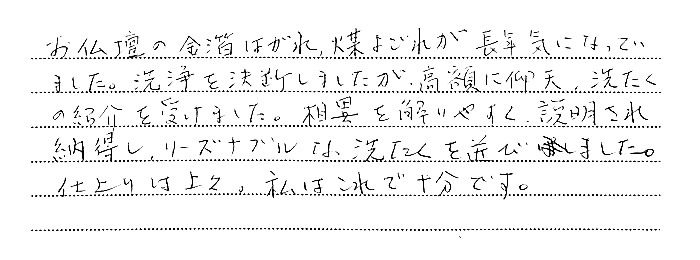 お仏壇の金箔はがれ、煤よごれが長年気になってい
ました。洗浄を決断しましたが、高額に仰天、洗たく
の紹介を受けました。相異を解りやすく、説明され
納得し、リーズナブルな、洗たくを並びしました。
仕上りは上々。私はこれで十分です。